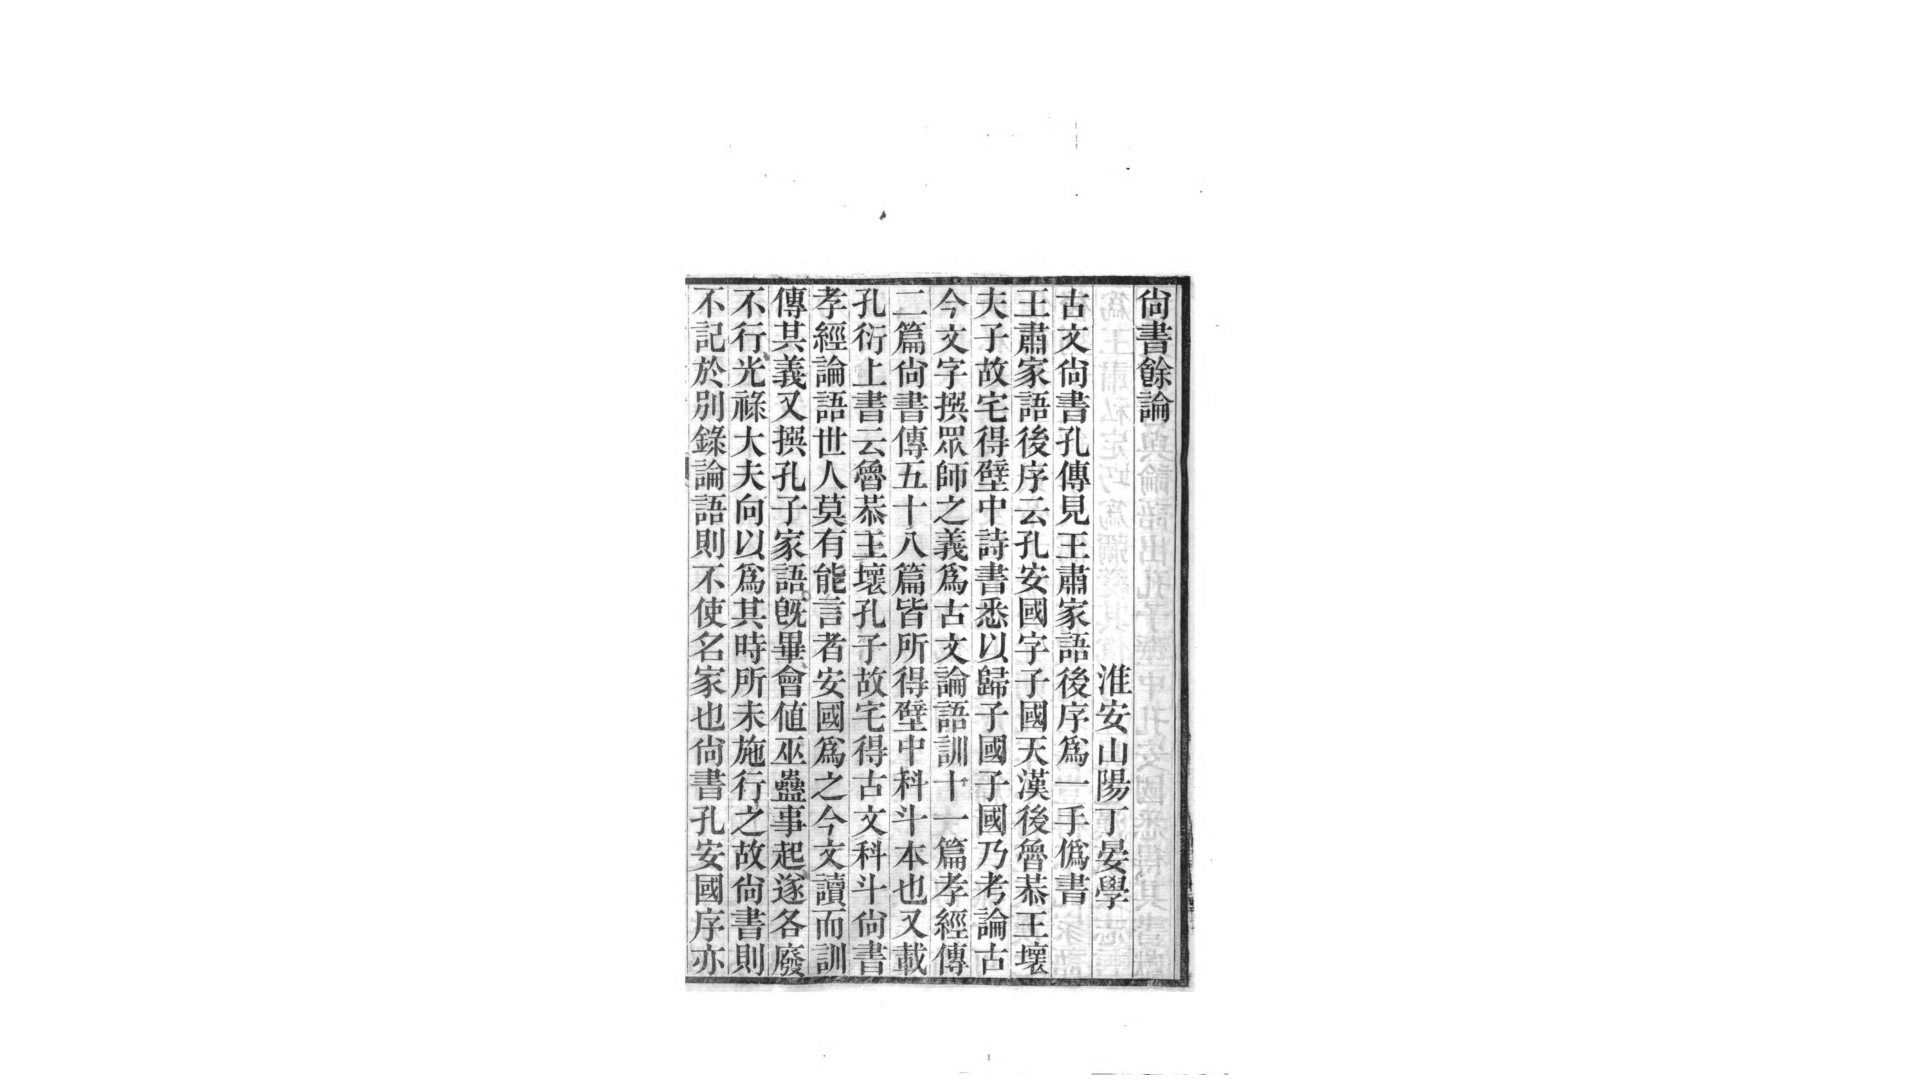 尙書餘論
淮安山陽丁晏學
古文尙書孔傳見王肅家語後序爲一手僞書
王肅家語後序云孔安國字子國天漢後魯恭王壞
夫子故宅得壁中詩書悉以歸子國子國乃考論古
今文字撰眾師之義爲古文論語訓十一篇孝經傳
二篇尙書傳五十八篇皆所得壁中科斗本也又載
孔衍上書云魯恭王壞孔子故宅得古文科斗尙書
孝經論語世人莫有能言者安國爲之今文讀而訓
傳其義又撰孔子家語旣畢會値巫蠱事起遂各廢
不行光祿大夫向以爲其時所未施行之故尙書則
不記於別錄論語則不使名家也尙書孔安國序亦